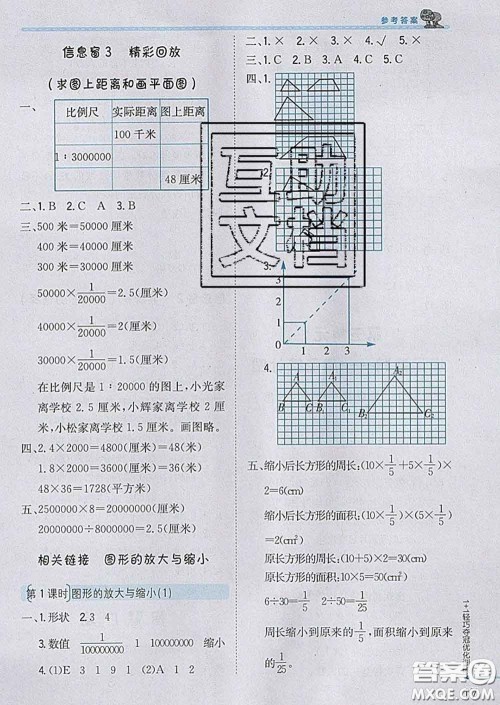 参考答案
信息窗3 精彩回放
(求图上距离和画平面图)
一、
比例尺 实际距离 图上距离
100千米
1∶3000000
48厘米
二、1.B 2.C A 3.B
三、500米=50000(厘米)
400米=40000(厘米)
300米=30000(厘米)
50000×1/20000=2.5(厘米)
40000×1/20000=2(厘米)
30000×1/20000=1.5(厘米)
在比例尺是1∶20000的图上,小光家
离学校2.5厘米,小辉家离学校2厘
米,小松家离学校1.5厘米。画图略。
四、2.4×2000=4800(厘米)=48(米)
1.8×2000=3600(厘米)=36(米)
48×36=1728(平方米)
五、2500000×8=20000000(厘米)
20000000÷8000000=2.5(厘米)
相关链接 图形的放大与缩小
第1课时 图形的放大与缩小(1)
一、1.形状 2.3 4
3.数值 1/100000000 1 100000000 缩小
4.(1)E 3 1 9 1 (2)A 1 2
二、1.× 2.× 3.× 4.√ 5.×
三、1.√ 2.√ 3.×
四、1.
2.
3.
3
2
1
0 1 2 3
4.
A A₁ A₂
B C B₁ C₁ B₂ C₂
五、缩小后长方形的周长:(10×1/5+5×1/5)×
2=6(cm)
缩小后长方形的面积:(10×1/5)×(5×1/5)
=2(cm²)
原长方形的周长:(10+5)×2=30(cm)
原长方形的面积:10×5=50(cm²)
6÷30=1/5 2÷50=1/25
周长缩小到原来的1/5,面积缩小到原来
的1/25。
1+1轻巧夺冠优化训
互动
文档
答案圈
MXQE.COM